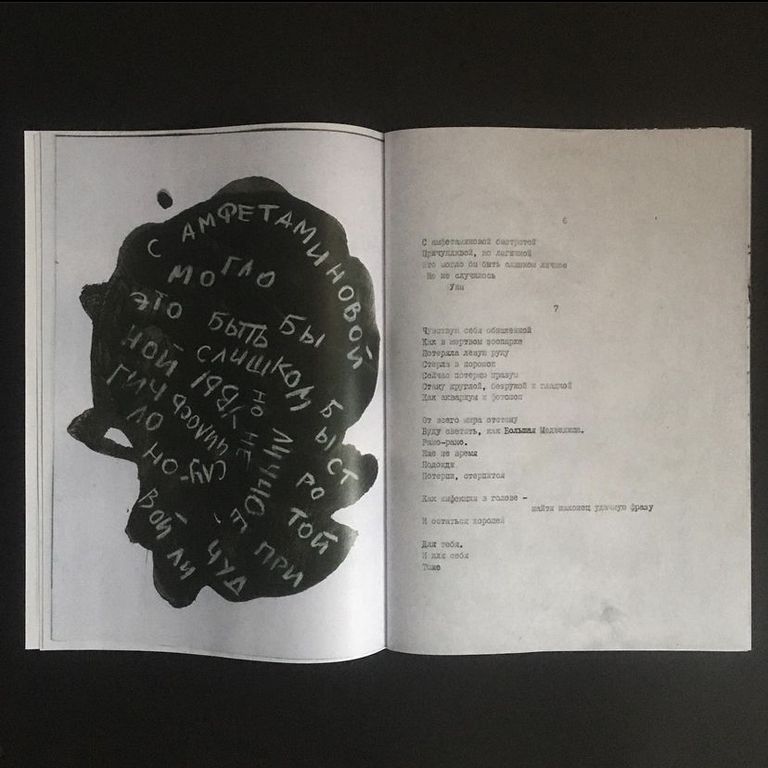 С АМФЕТАМИНОВОЙ
БЫСТ
РО
ТОЙ
ПРИ
ЧУД
ЛИ
ВОЙ
НО
ЛО
ГИЧ
НОЙ
ЭТО
МОГЛО
БЫ
БЫТЬ
СЛИШКОМ
ЛИЧНОЕ
НО НЕ
СЛУ-
ЧИЛОСЬ
УВЫ
6
С амфетаминовой быстротой
Причудливой, но логичной
Это могло бы быть слишком личное
Но не случилось
Увы
7
Чувствую себя обнаженной
Как в мертвом зоопарке
Потеряла левую руку
Стерла в порошок
Сейчас потеряю правую
Стану круглой, безрукой и гладкой
Как аквариум и фотошоп
От всего мира отстану
Буду светить, как Большая Медведица.
Рано-рано.
Еще не время
Подожди
Потерпи, стерпится
Как инфекция в голове -
найти наконец удачную фразу
И остаться хорошей
Для тебя.
И для себя
Тоже